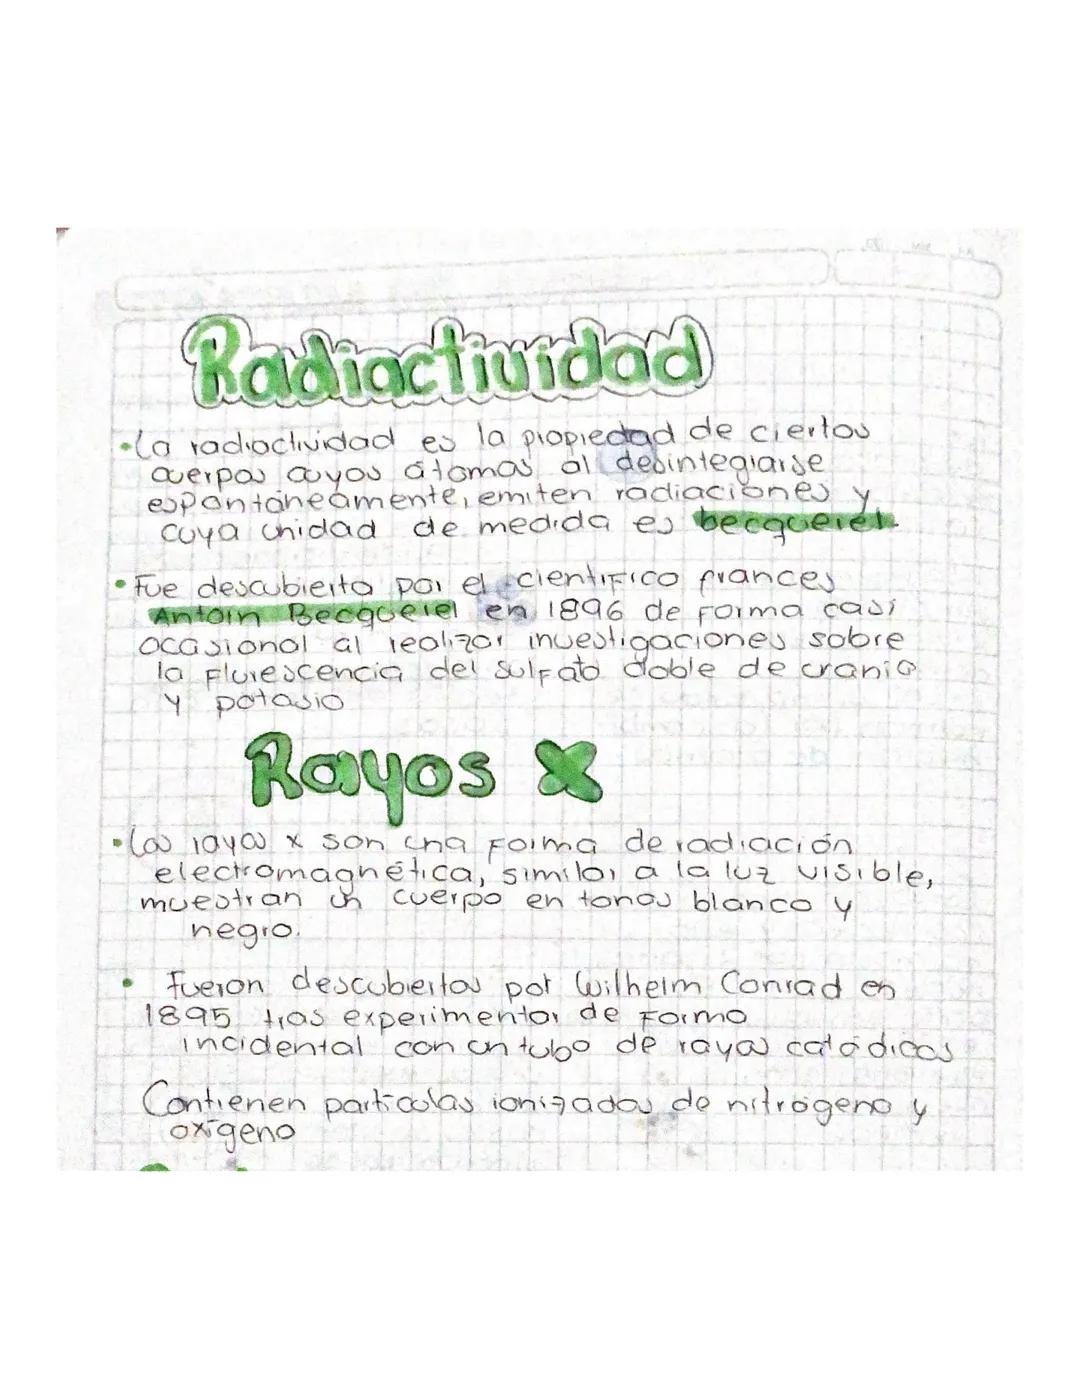 Radiactividad
• La radioctividad es la propiedad de ciertos
cuerpos cuyos átomos al desintegrarse
espontáneamente, emiten radiaciones y
cuya unidad de medida es becquerel.
• Fue descubierta por el científico frances
Antoin Becquerel en 1896 de forma casi
ocasional al realizar investigaciones sobre
la flurescencia del sulfato doble de uranio
y potasio
Rayos X
• Los rayos x son una forma de radiación
electromagnética, similar a la luz visible,
muestran un cuerpo en tonos blanco y
negro.
• Fueron descubiertos por Wilhelm Conrad en
1895 tras experimentar de forma
incidental con un tubo de rayos catódicos
Contienen particulas ionizadas de nitrógeno y
oxigeno